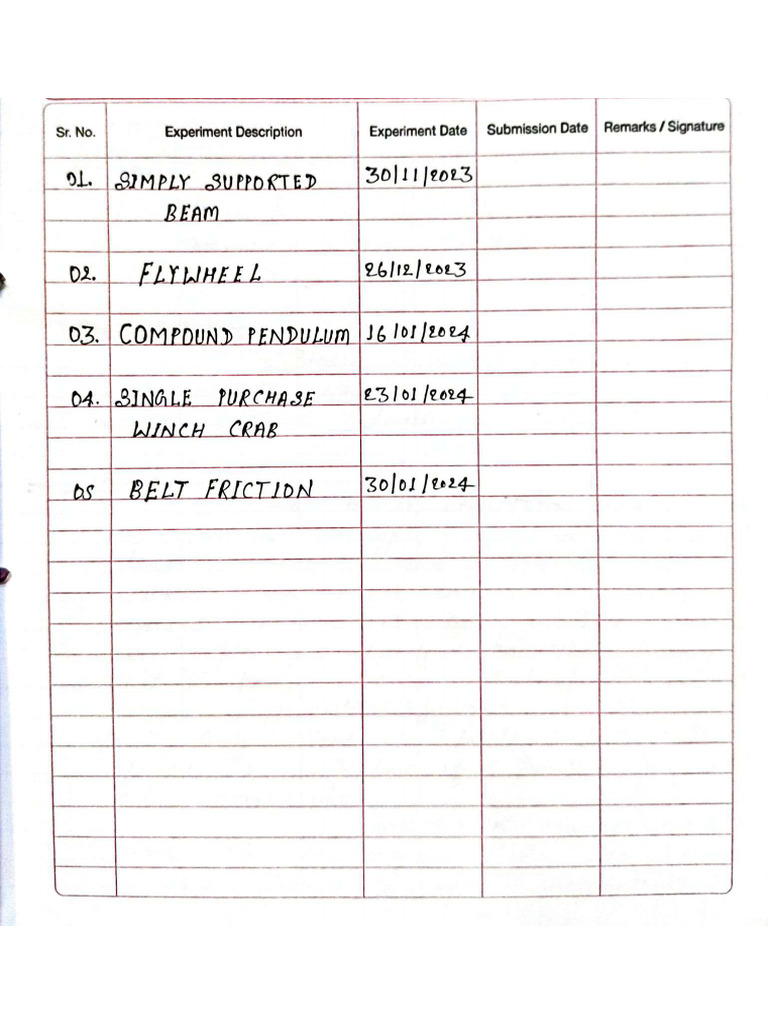 Sr. No. Experiment Description Experiment Date Submission Date Remarks / Signature
01. SIMPLY SUPPORTED 30/11/2023
BEAM
02. FLYWHEEL 26/12/2023
03. COMPOUND PENDULUM 16/01/2024
04. SINGLE PURCHASE 23/01/2024
WINCH CRAB
05 BELT FRICTION 30/01/2024